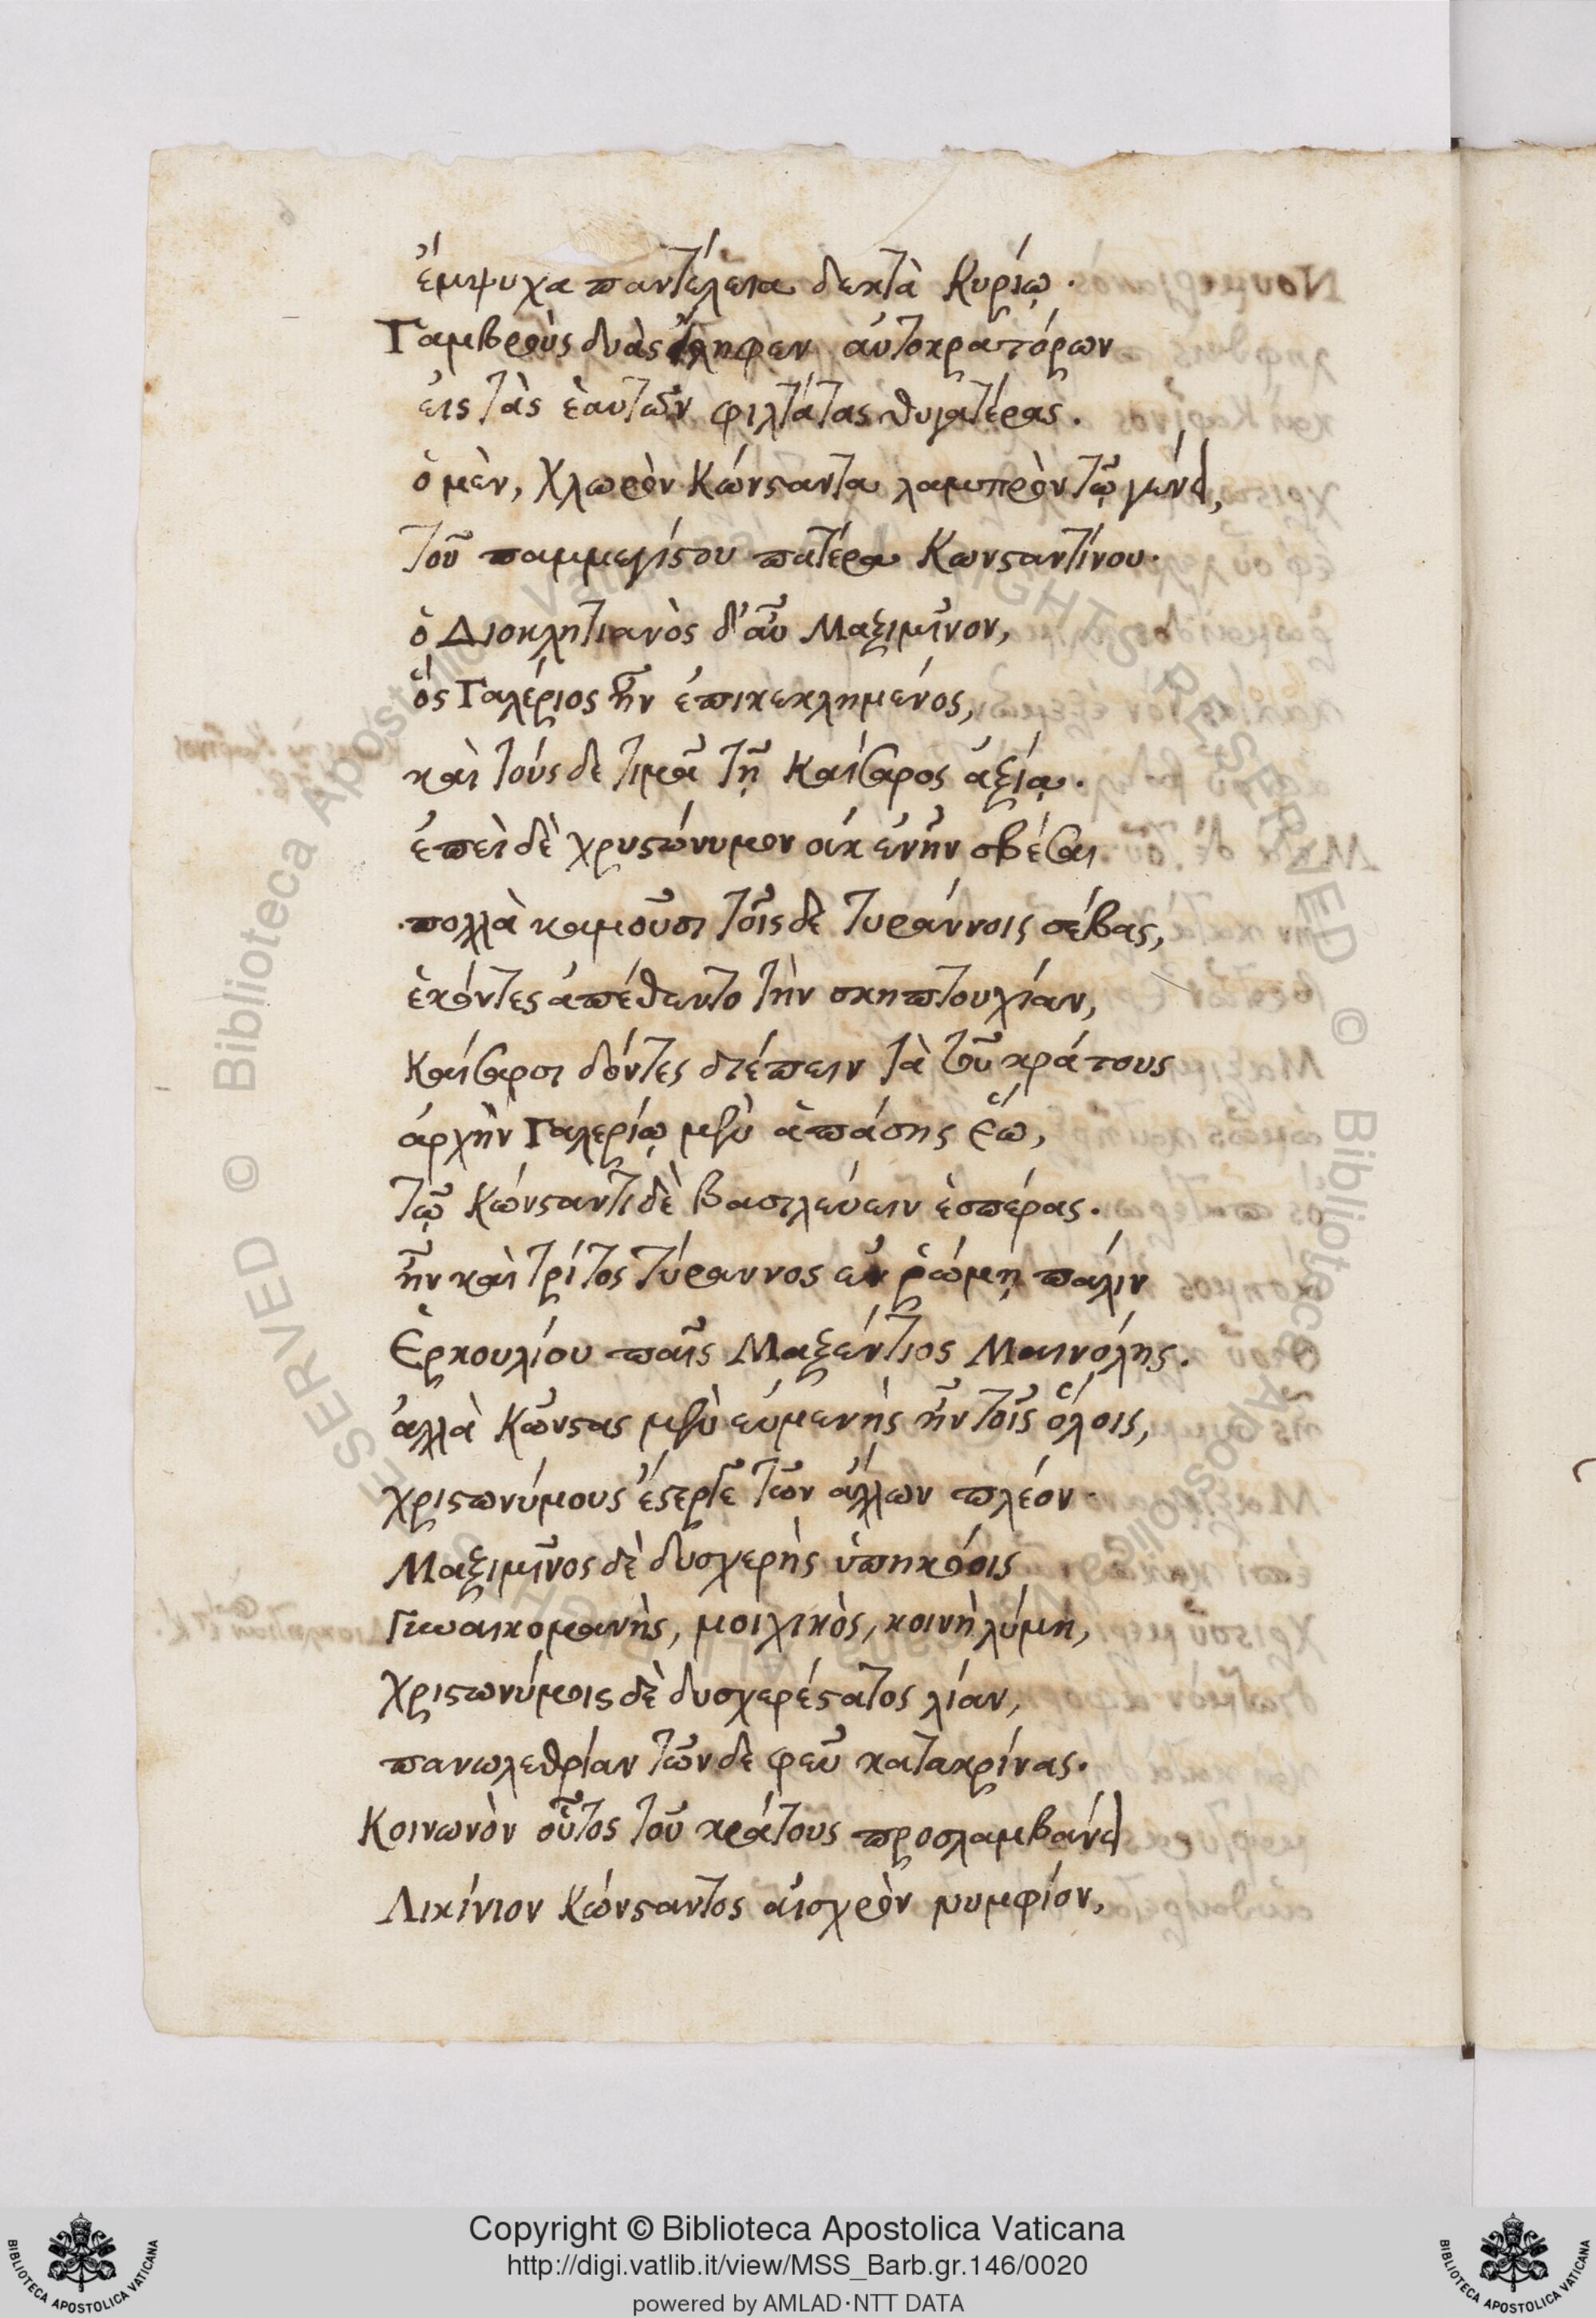 ἔμψυχα παντέλεια δεκτὰ Κυρίῳ.
Γαμβροὺς δυὰς εἴληφεν αὐτοκρατόρων
εἰς τὰς ἑαυτῶν φιλτάτας θυγατέρας.
ὁ μὲν, Χλωρὸν Κώνσταντα λαμπρὸν τῷ γένει,
τοῦ παμμεγίστου πατέρα Κωνσταντίνου.
ὁ Διοκλητιανὸς δ' αὖ Μαξιμῖνον,
ὃς Γαλέριος ἦν ἐπικεκλημένος,
καὶ τούσδε τιμᾶ τῇ Καίσαρος ἀξίᾳ.
ἐπεὶ δὲ χρυστώνυμον οὐκ ἐνῆν σβέσαι
πολλὰ καμοῦσι τοῖσδε τυράννοις σέβας,
ἑκόντες ἀπέθεντο τὴν σκηπτουχίαν,
Καίσαρσι δόντες διέπειν τὰ τοῦ κράτους
ἀρχὴν Γαλερίῳ μὲν ἁπάσης ἕω,
τῷ Κώνσταντι δὲ βασιλεύειν ἑσπέρας.
ἦν καὶ τρίτος τύραννος ἐν ῥώμῃ πάλιν
Ἑρκουλίου παῖς Μαξέντιος Μαινόλης.
ἀλλὰ Κῶνστας μὲν εὐμενὴς ἦν τοῖς ὅλοις,
χριστωνύμους ἔστεργε τῶν ἄλλων πλέον.
Μαξιμῖνος δὲ δυσχερὴς ὑπηκόοις
Γυναικομανὴς, μοιχικὸς, κοινὴ λύμη,
χριστωνύμοις δὲ δυσχερέστατος λίαν,
πανωλεθρίαν τῶνδε φεῦ κατακρίνας.
Κοινωνὸν οὗτος τοῦ κράτους προσλαμβάνει
Λικίνιον Κώνσταντος αἰσχρὸν νυμφίον,
Copyright © Biblioteca Apostolica Vaticana
http://digi.vatlib.it/view/MSS_Barb.gr.146/0020
powered by AMLAD·NTT DATA